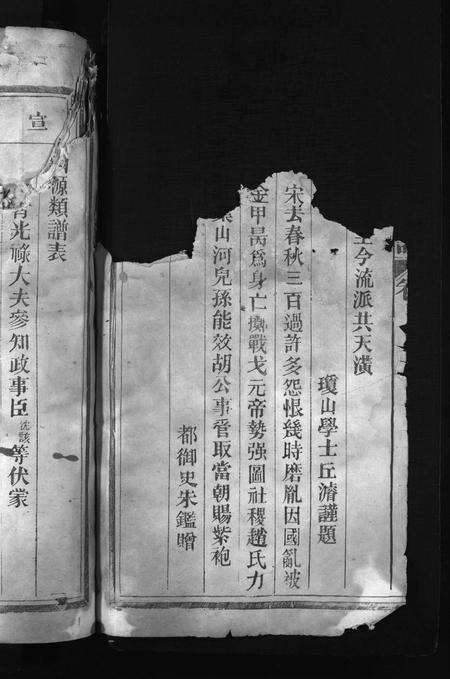 今流派共天潢
瓊山學士丘濬謹題
宋去春秋三百過許多怨恨幾時磨胤因國亂被
金甲昺為身亡擲戰戈元帝勢强圖社稷趙氏力
山河兒孫能效胡公事管取當朝賜紫袍
都御史朱鑑贈
源類譜表
光祿大夫參知政事臣沈該等伏蒙
宣